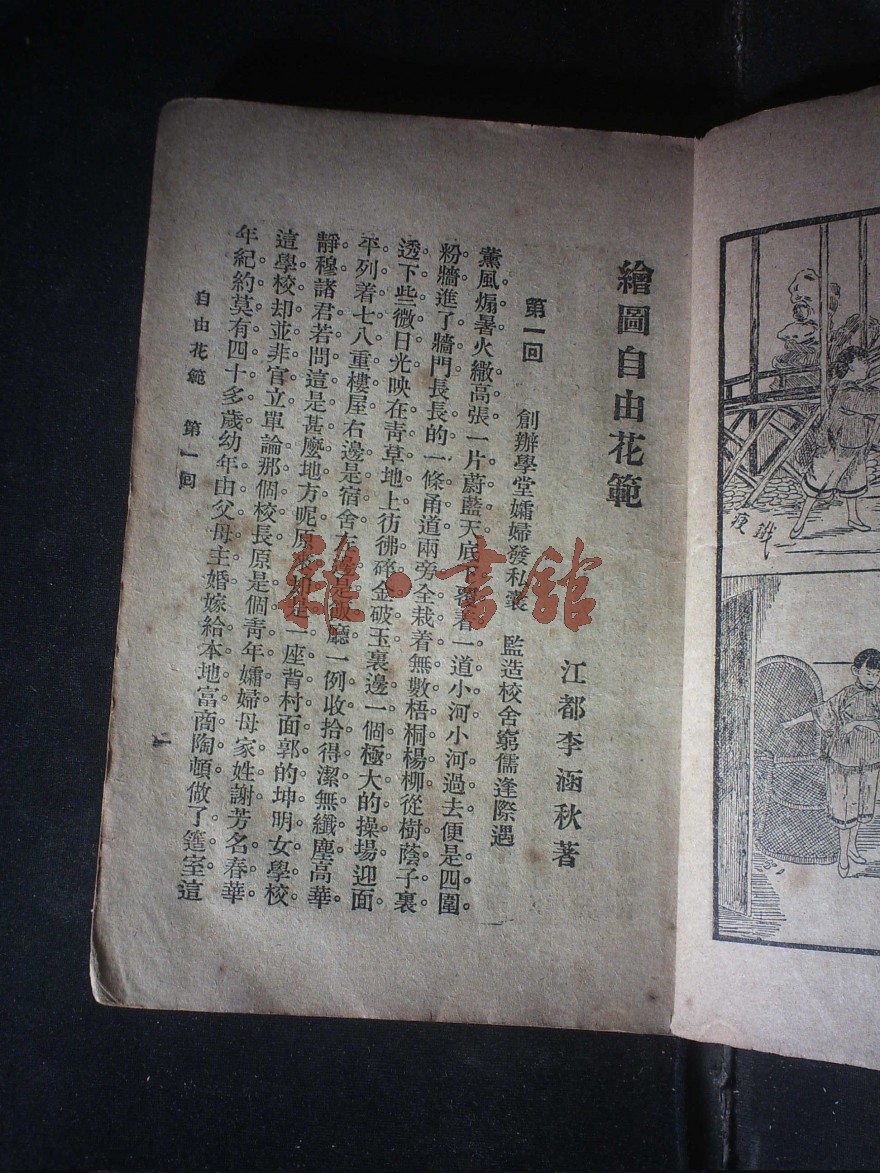 繪圖自由花範
江都李涵秋著
第一回 創辦學堂孀婦發私囊 監造校舍窮儒逢際遇
薰風煽暑火繖高張一片蔚藍天底下覆着一道小河小河過去便是四圍
粉牆進了牆門長長的一條甬道兩旁全栽着無數梧桐楊柳從樹蔭子裏
透下些微日光映在青草地上彷彿碎金破玉裏邊一個極大的操場迎面
平列着七八重樓屋右邊是宿舍左邊是飯廳一例收拾得潔無纖塵高華
靜穆諸君若問這是甚麼地方呢原來却是一座背村面郭的坤明女學校
這學校却並非官立單論那個校長原是個青年孀婦母家姓謝芳名春華
年紀約莫有四十多歲幼年由父母主婚嫁給本地富商陶頓做了簉室這
自由花範 第一回
一
雜·書館